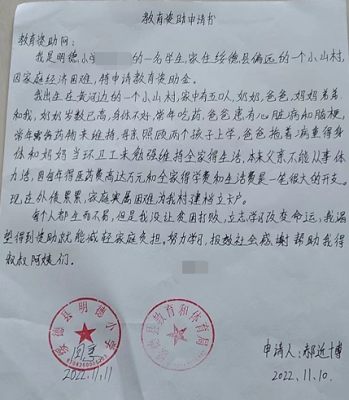 教育资助申请书
教育资助网：
我是明德小学 的一名学生，家住绥德县偏远的一个小山村，
因家庭经济困难，特申请教育资助金。
我出生在黄河边的一个小山村，家中有五口人，奶奶、爸爸、妈妈、弟弟
和我，奶奶岁数已高，身体不好，常年吃药，爸爸患有心脏病和脑梗，
常年需要药物来维持，母亲照顾两个孩子上学，爸爸拖着病重得身
体和妈妈当环卫工来勉强维持全家得生活，本来父亲不能从事体
力活，因每年得医药费高达万元和全家得学费和生活费是一笔很大的开支。
现在外债累累，家庭实属困难，为我村建档立卡户。
每个人都生而不易，但是我没让贫困打败，立志学习改变命运，我渴
望得到资助就能减轻家庭负担。努力学习，报效社会，感谢帮助我得
叔叔阿姨们。
绥德县明德小学
绥德县教育和体育局
2022.11.11
申请人：郝
2022.11.10.